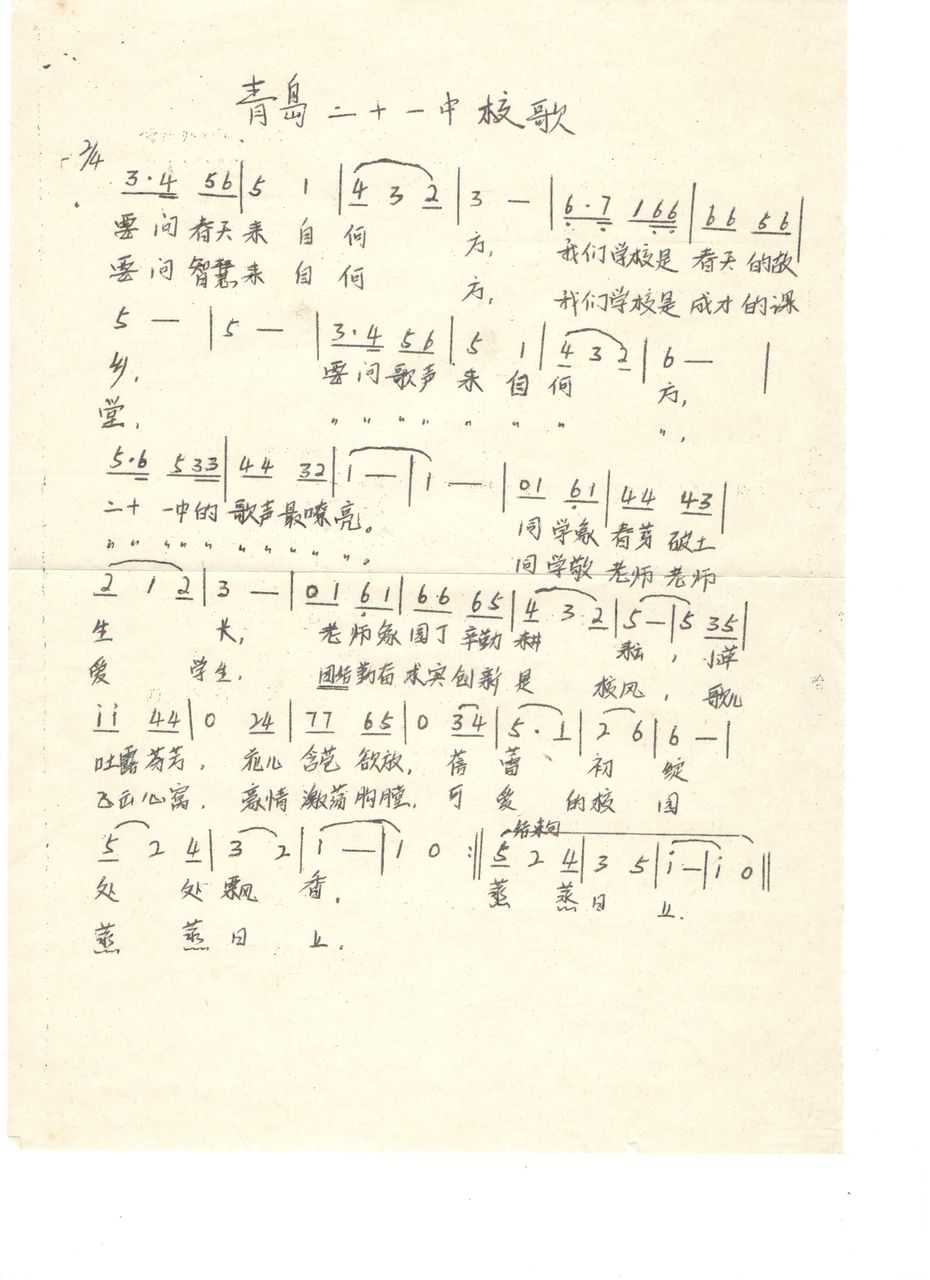 青岛二十一中校歌
2/4
3·4 56|5 1|4 3 2|3 —|6·7 166|66 56|
要问春天来自何方,我们学校是春天的故
要问智慧来自何方,我们学校是成才的课
5 —|5 —|3·4 56|5 1|4 3 2|6 —|
乡,要问歌声来自何方,
堂, 〃 〃 〃 〃 〃 〃 〃 〃,
5·6 533|44 32|1 —|1 —|01 61|44 43|
二十一中的歌声最嘹亮。同学象春芽破土
〃 〃 〃 〃 〃 〃 〃 〃 〃 〃。同学敬老师老师
2 1 2|3 —|01 61|66 65|4 3 2|5 —|5 35|
生长,老师象园丁辛勤耕耘,小草
爱学生,团结勤奋求实创新是校风,歌儿
i i 44|0 24|77 65|0 34|5·1|2 6|6 —|
吐露芬芳,花儿含苞欲放,蓓蕾初绽
飞出心窝,豪情激荡胸膛,可爱的校园
结束句
5 2 4|3 2|1 —|1 0 :‖5 2 4|3 5|i —|i 0‖
处处飘香。蒸蒸日上.
蒸蒸日上.